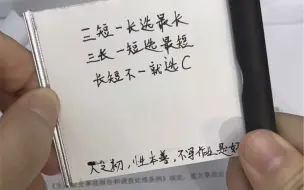 三短一长选最长
三长一短选最短
长短不一就选C
人之初，性本善，不写作业是好